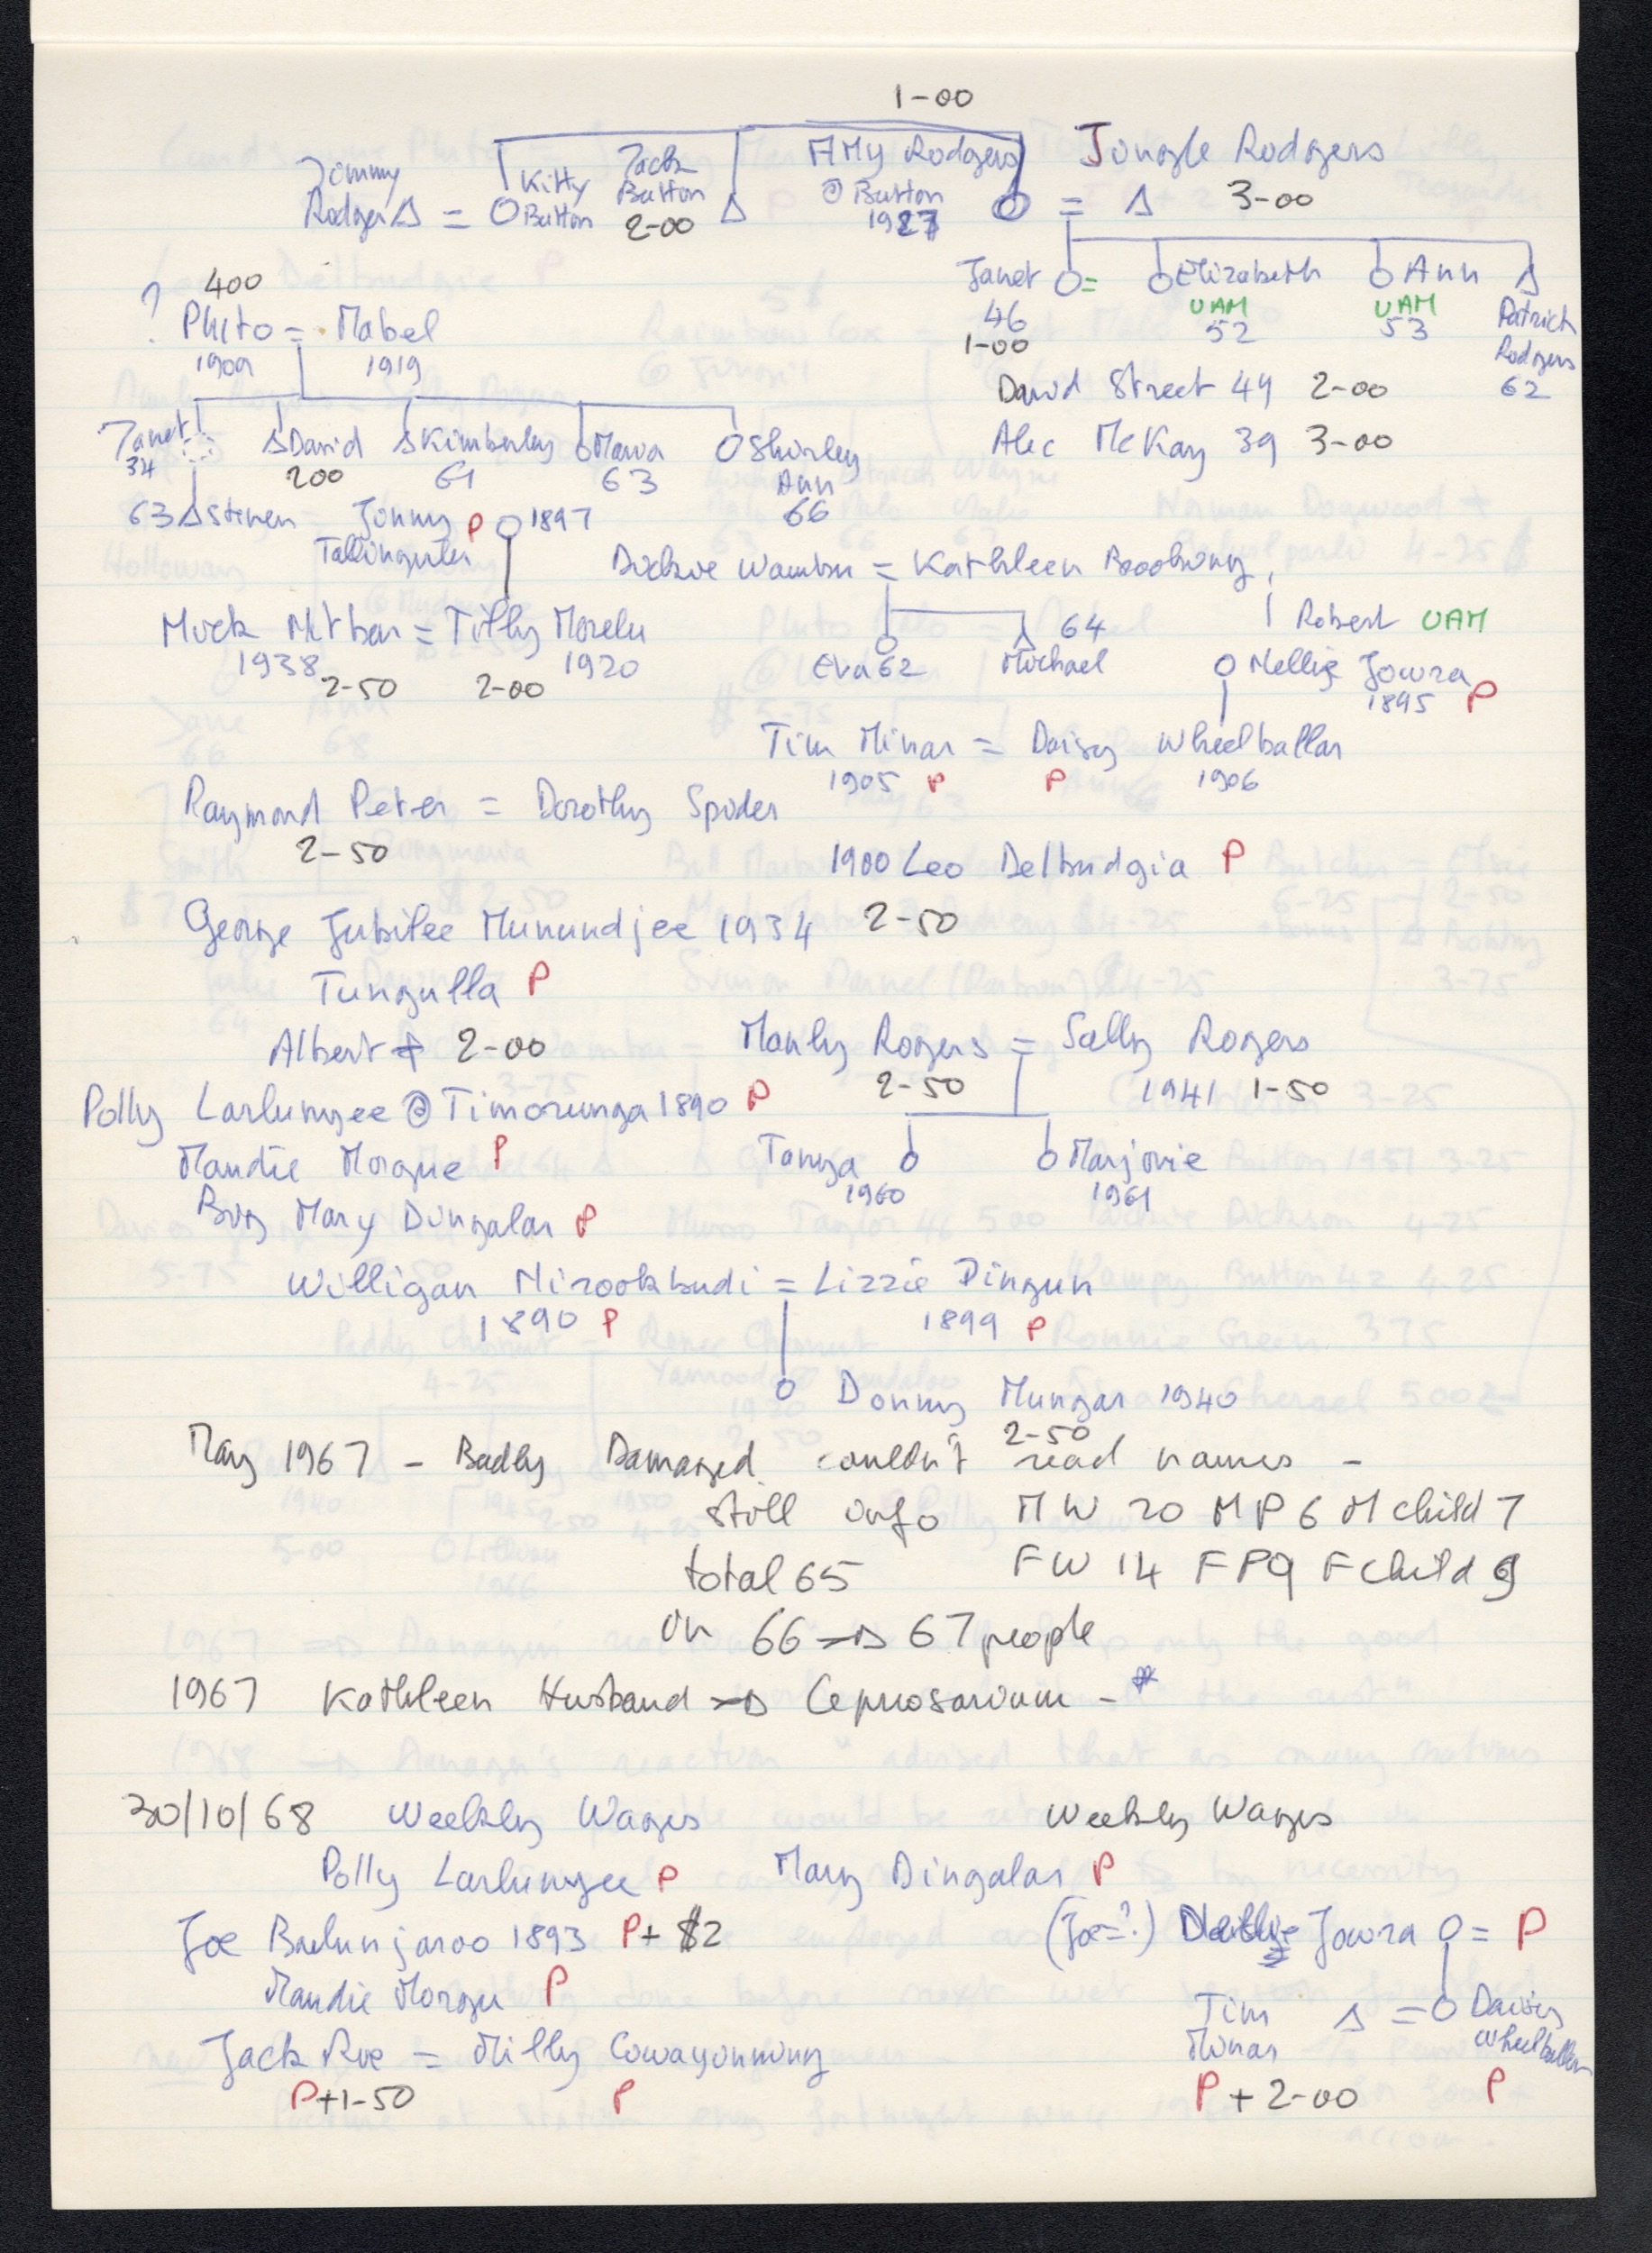 1-00
Tommy Kitty Jack AMy Rodgers Jungle Rodgers
Rodger Δ = O Button Button @ Button O = Δ 3-00
2-00 Δ 1927
Janet O= O Elizabeth O Ann Δ
46 UAM UAM Patrick
1-00 52 53 Rodgers
62
? 400
Pluto = Mabel
1909 1919
David Street 49 2-00
Alec McKay 39 3-00
Janet Δ David Δ Kimberley O Maria O Shirley
34 200 61 63 Ann
66
63 Δ Steven Jonny P O 1897
Dickie Wambu = Kathleen
Robert UAM
Muck = Tilly
1938 1920
2-50 2-00
O Eva 62 Δ Michael 64
O Nellie Jowra
1895 P
Tim Minar = Daisy Wheelballar
1905 P P 1906
Raymond Peter = Dorothy Spider
2-50
1900 Leo Delbudgia P
George Jubilee Munundjee 1934 2-50
Tungulla P
Albert 2-00
Manly Rogers = Sally Rogers
2-50 1941 1-50
Polly Larlumyee @ Timorunga 1890 P
Maudie Morgue P
Tanya O O Marjorie
1960 1961
Big Mary Dingalar P
Willigan Mirookbudi = Lizzie Dingun
1890 P 1899 P
O Donny Mungar 1940
2-50
May 1967 - Badly Damaged couldn't read names -
still info MW 20 MP 6 M child 7
total 65 FW 14 FP9 F child 9
in 66 → 67 people
1967 Kathleen Husband → Leprosarium - *
30/10/68 Weekly Wages Weekly Wages
Polly Larlumyee P Mary Dingalar P
Joe Badunjaroo 1893 P+ $2 (Joe=?) Jowra O = P
Maudie Morgu P
Tim Δ = O Daisy
Minar Wheelballar
P + 2-00 P
Jack Roe = Milly Cowayonminy
P+1-50 P